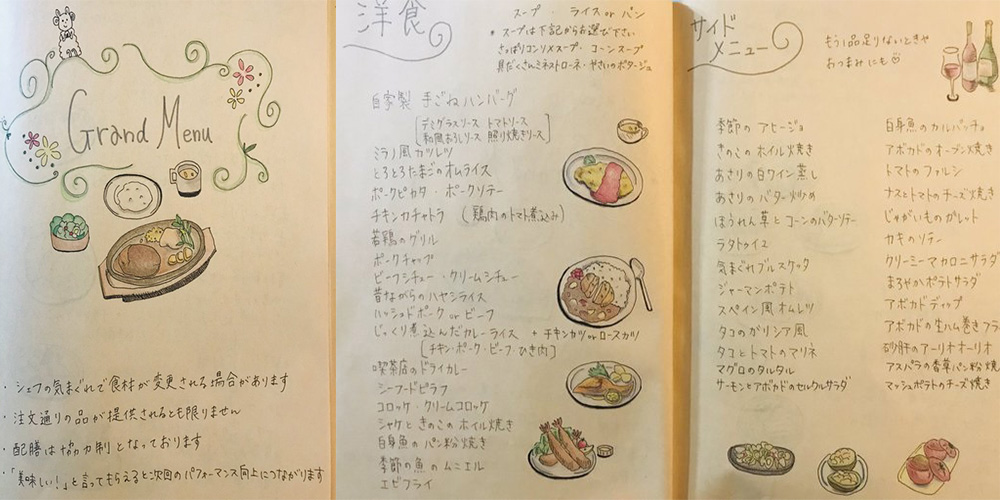 Grand Menu
・シェフの気まぐれで食材が変更される場合があります
・注文通りの品が提供されるとも限りません
・配膳は協力制となっております
・「美味しい!」と言ってもらえると次回のパフォーマンス向上につながります
洋食
スープ ・ ライス or パン
* スープは下記からお選び下さい
さっぱりコンソメスープ・コーンスープ
具だくさんミネストローネ・やさいのポタージュ
自家製 手ごねハンバーグ
デミグラスソース トマトソース
和風おろしソース 照り焼きソース
ミラノ風カツレツ
とろとろたまごのオムライス
ポークピカタ・ポークソテー
チキンカチャトラ (鶏肉のトマト煮込み)
若鶏のグリル
ポークチャップ
ビーフシチュー・クリームシチュー
昔ながらのハヤシライス
ハッシュドポーク or ビーフ
じっくり煮込んだカレーライス + チキンカツ or ロースカツ
[チキン・ポーク・ビーフ・ひき肉]
喫茶店のドライカレー
シーフードピラフ
コロッケ・クリームコロッケ
シャケときのこのホイル焼き
白身魚のパン粉焼き
季節の魚のムニエル
エビフライ
サイドメニュー
もう1品足りないときや
おつまみにも♡
季節のアヒージョ
きのこのホイル焼き
あさりの白ワイン蒸し
あさりのバター炒め
ほうれん草とコーンのバターソテー
ラタトゥイユ
気まぐれブルスケッタ
ジャーマンポテト
スペイン風オムレツ
タコのガリシア風
タコとトマトのマリネ
マグロのタルタル
サーモンとアボカドのセルクルサラダ
白身魚のカルパッチョ
アボカドのオーブン焼き
トマトのファルシ
ナスとトマトのチーズ焼き
じゃがいものガレット
カキのソテー
クリーミーマカロニサラダ
まろやかポテトサラダ
アボカドディップ
アボカドの生ハム巻きフラ
砂肝のアーリオオーリオ
アスパラの香草パン粉焼
マッシュポテトのチーズ焼き